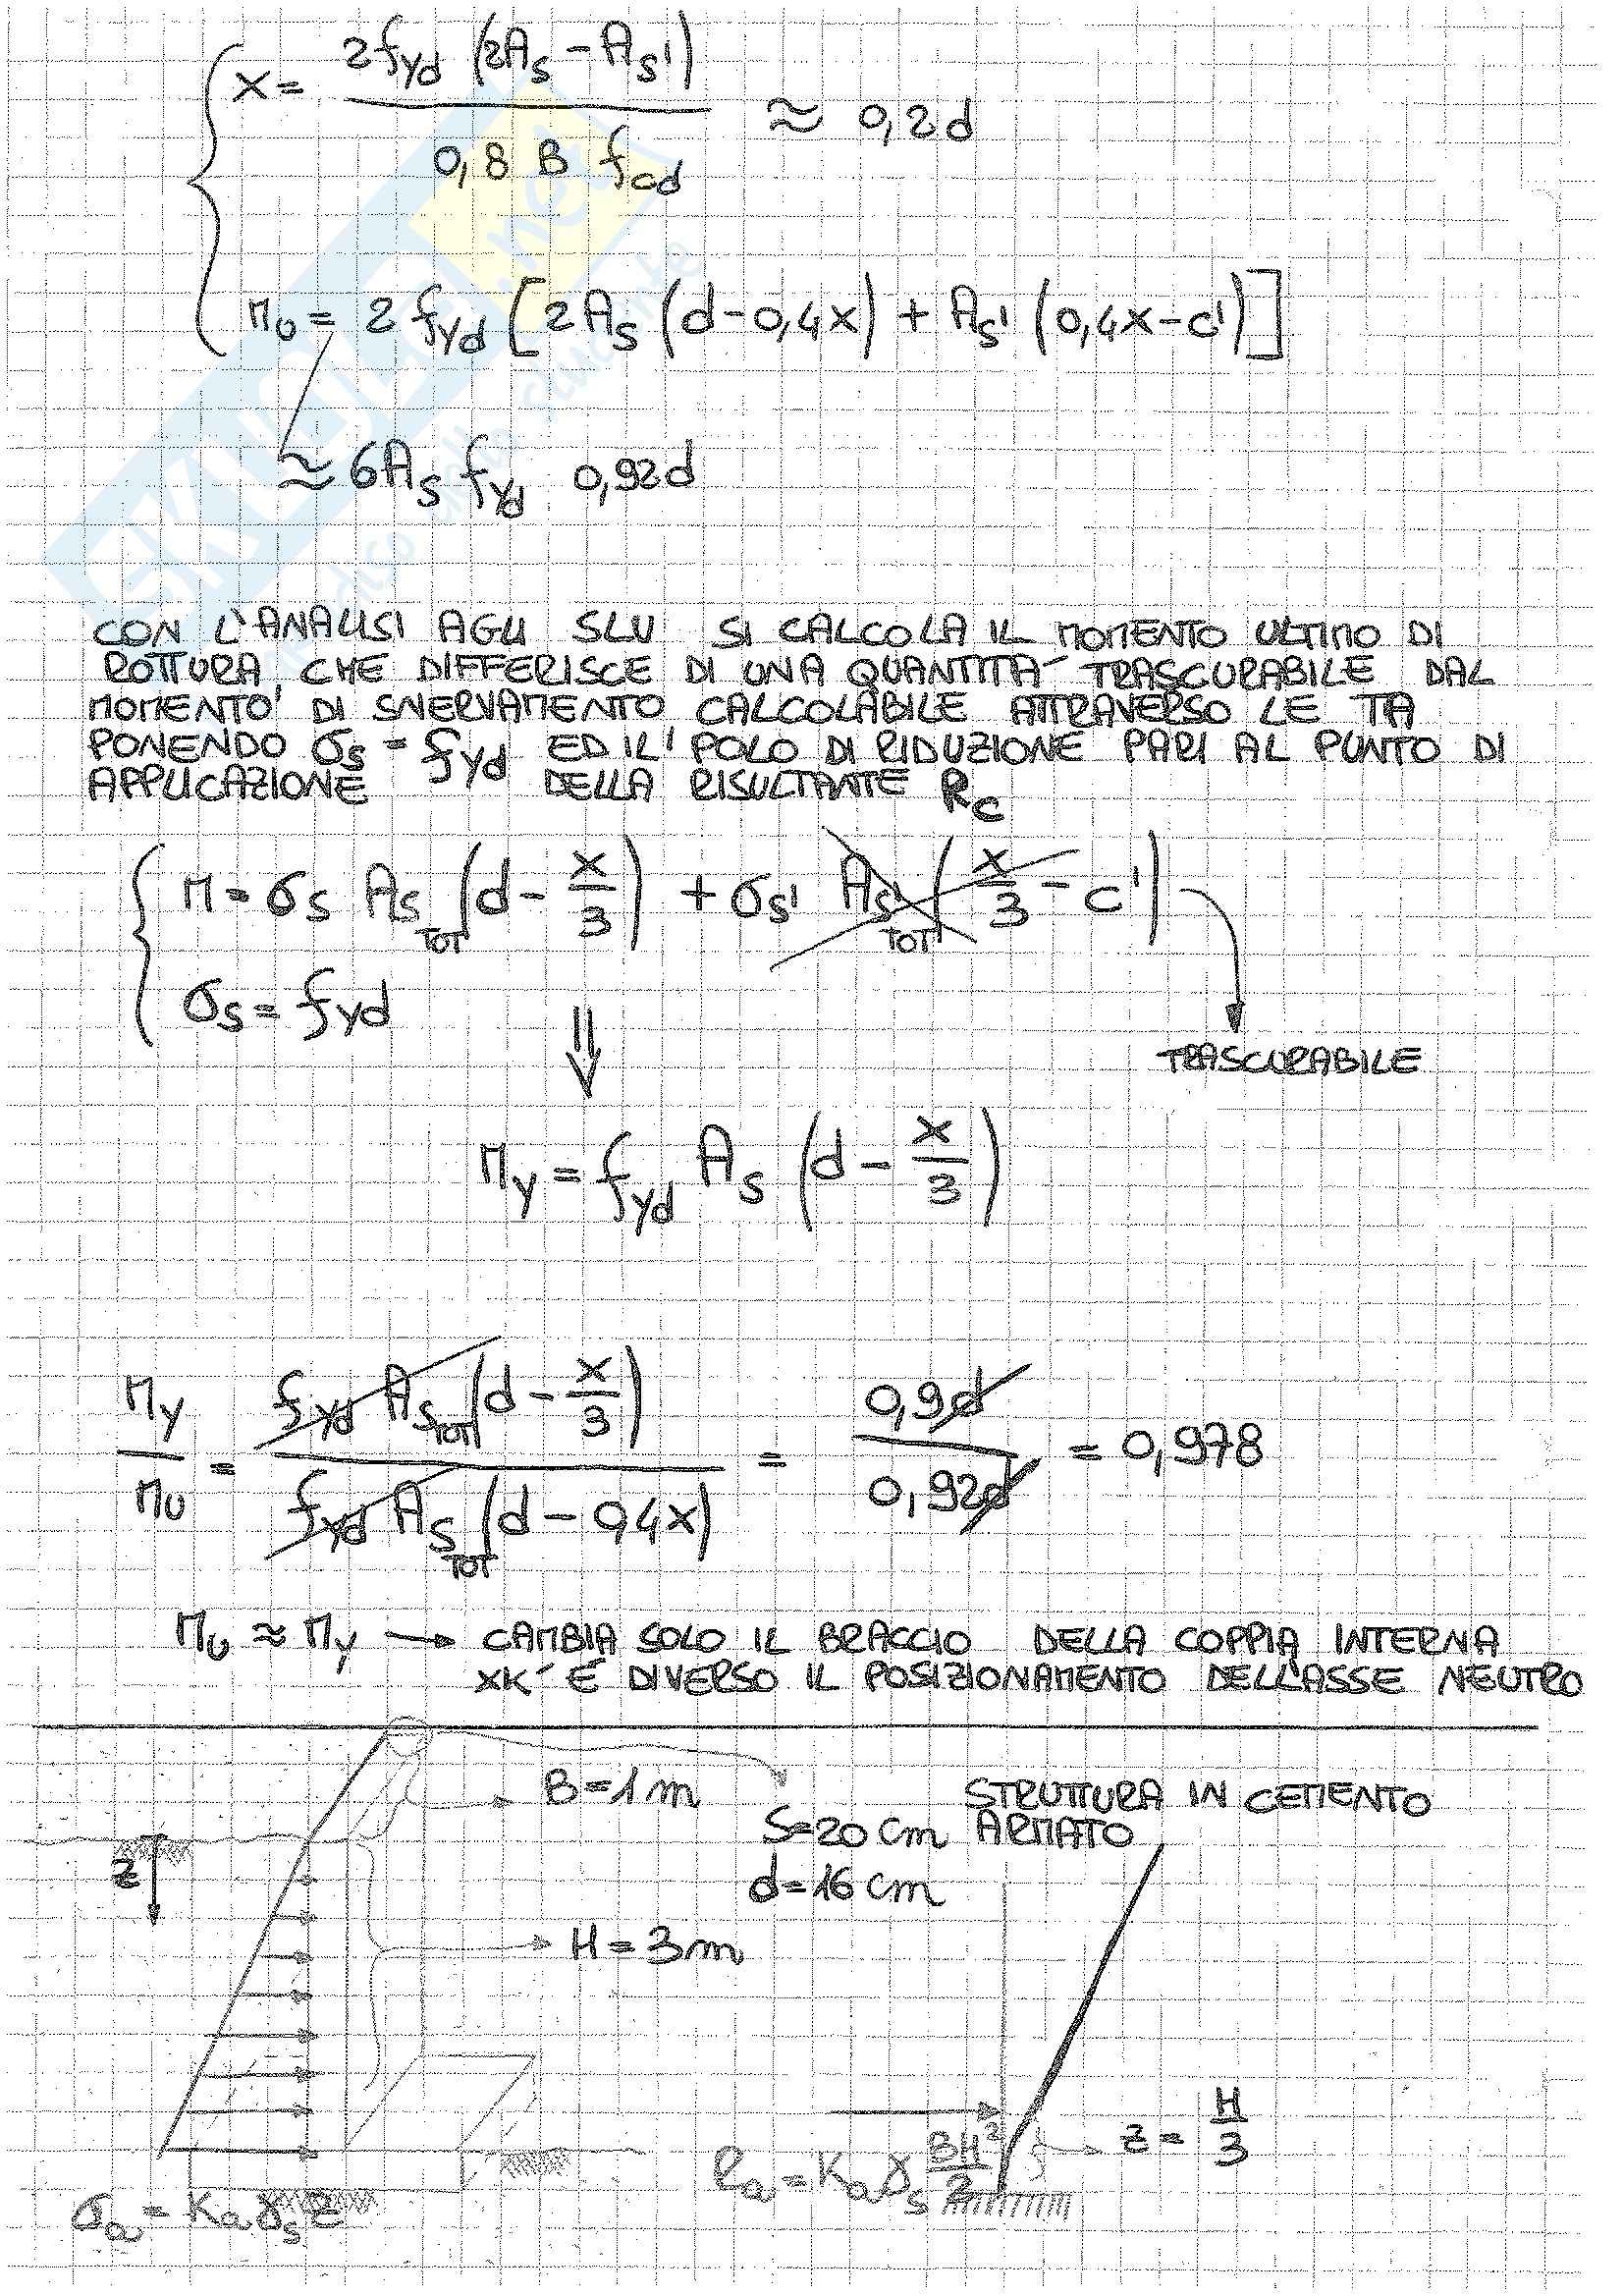 x = 2fyd (2As - As') / 0,8 B fcd ≈ 0,2d
Mu = 2 fyd [2As (d-0,4x) + As' (0,4x-c')]
≈ 6As fyd 0,92d
CON L'ANALISI AGLI SLU SI CALCOLA IL MOMENTO ULTIMO DI
ROTTURA CHE DIFFERISCE DI UNA QUANTITÀ TRASCURABILE DAL
MOMENTO' DI SNERVAMENTO CALCOLABILE ATTRAVERSO LE TA
PONENDO σs = fyd ED IL' POLO DI RIDUZIONE PARI AL PUNTO DI
APPLICAZIONE DELLA RISULTANTE Rc
M = σs As TOT (d - x/3) + σs' As' TOT (x/3 - c')
σs = fyd
⇓
TRASCURABILE
My = fyd As (d - x/3)
My/Mu = fyd As TOT (d - x/3) / fyd As TOT (d - 0,4x) = 0,9d / 0,92d = 0,978
Mu ≈ My → CAMBIA SOLO IL BRACCIO DELLA COPPIA INTERNA
XK' È DIVERSO IL POSIZIONAMENTO DELL'ASSE NEUTRO
B = 1 m
STRUTTURA IN CEMENTO
S=20 cm ARMATO
z
d=16 cm
H = 3 m
z = H/3
Pa = Ka γs BH²/2
σa = Ka γs z